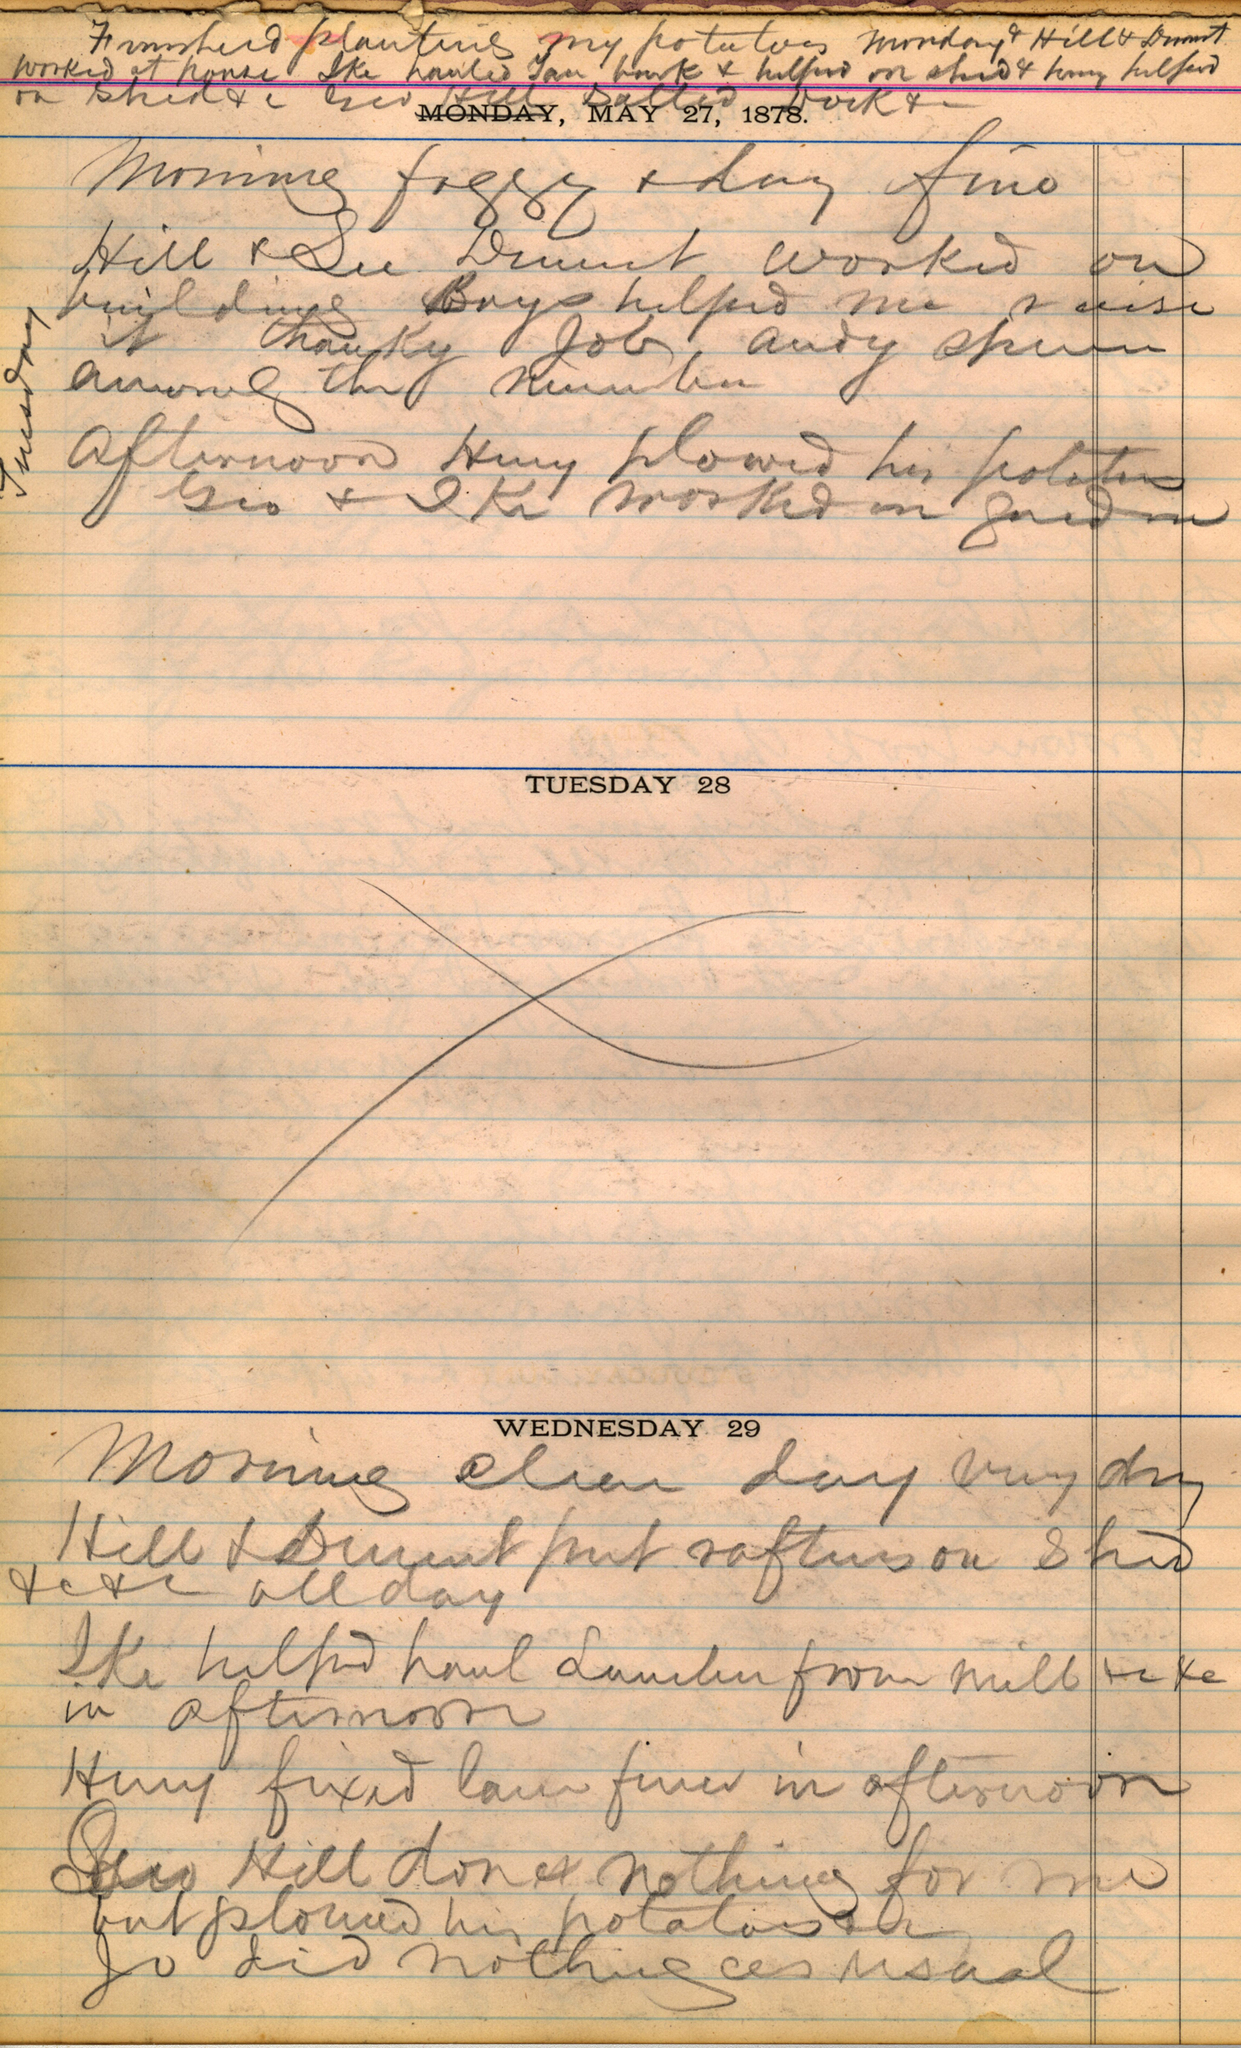 Finished planting my potatoes Monday & Hill & Dumit
worked at house Ike hauled Tan bark & helped on shed & Henry helped
on Shed &c Geo Hill Salted &c
MONDAY, MAY 27, 1878.
Morning foggy & day fine
Hill & Lee Dumit worked on
building Boys helped me raise
it thanky Job, Andy
among the number
Tuesday
afternoon Henry plowed his potatoes
Geo & Ike worked in garden
TUESDAY 28
WEDNESDAY 29
Morning clear day very dry
Hill & Dumit put rafters on Shed
&c &c all day
Ike helped haul Lumber from mill &c &c
in afternoon
Henry fixed lane fence in afternoon
Geo Hill done nothing for me
but plowed his potatoes &c
Jo did nothing as usual